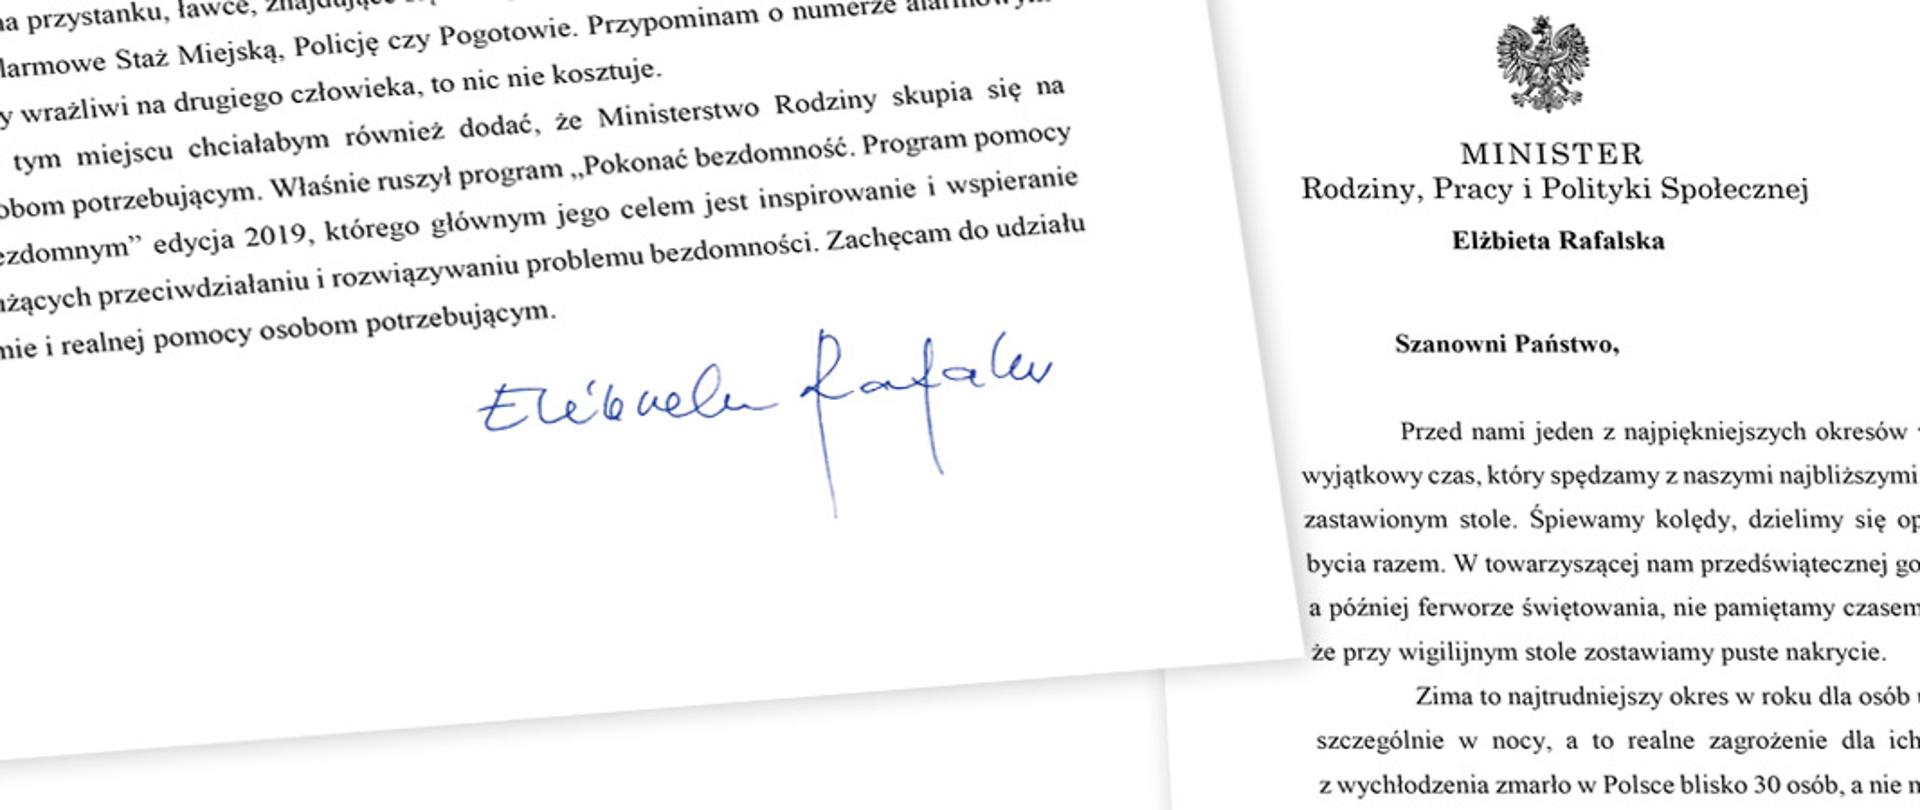 na przystanku, ławce,
larmowe Staż Miejską, Policję czy Pogotowie. Przypominam o numerze alarmowym
y wrażliwi na drugiego człowieka, to nic nie kosztuje.
tym miejscu chciałabym również dodać, że Ministerstwo Rodziny skupia się na
obom potrzebującym. Właśnie ruszył program „Pokonać bezdomność. Program pomocy
ezdomnym” edycja 2019, którego głównym jego celem jest inspirowanie i wspieranie
użących przeciwdziałaniu i rozwiązywaniu problemu bezdomności. Zachęcam do udziału
mie i realnej pomocy osobom potrzebującym.
Elżbieta Rafalska
MINISTER
Rodziny, Pracy i Polityki Społecznej
Elżbieta Rafalska
Szanowni Państwo,
Przed nami jeden z najpiękniejszych okresów
wyjątkowy czas, który spędzamy z naszymi najbliższymi
zastawionym stole. Śpiewamy kolędy, dzielimy się op
bycia razem. W towarzyszącej nam przedświątecznej go
a później ferworze świętowania, nie pamiętamy czasem
że przy wigilijnym stole zostawiamy puste nakrycie.
Zima to najtrudniejszy okres w roku dla osób
szczególnie w nocy, a to realne zagrożenie dla ich
z wychłodzenia zmarło w Polsce blisko 30 osób, a nie